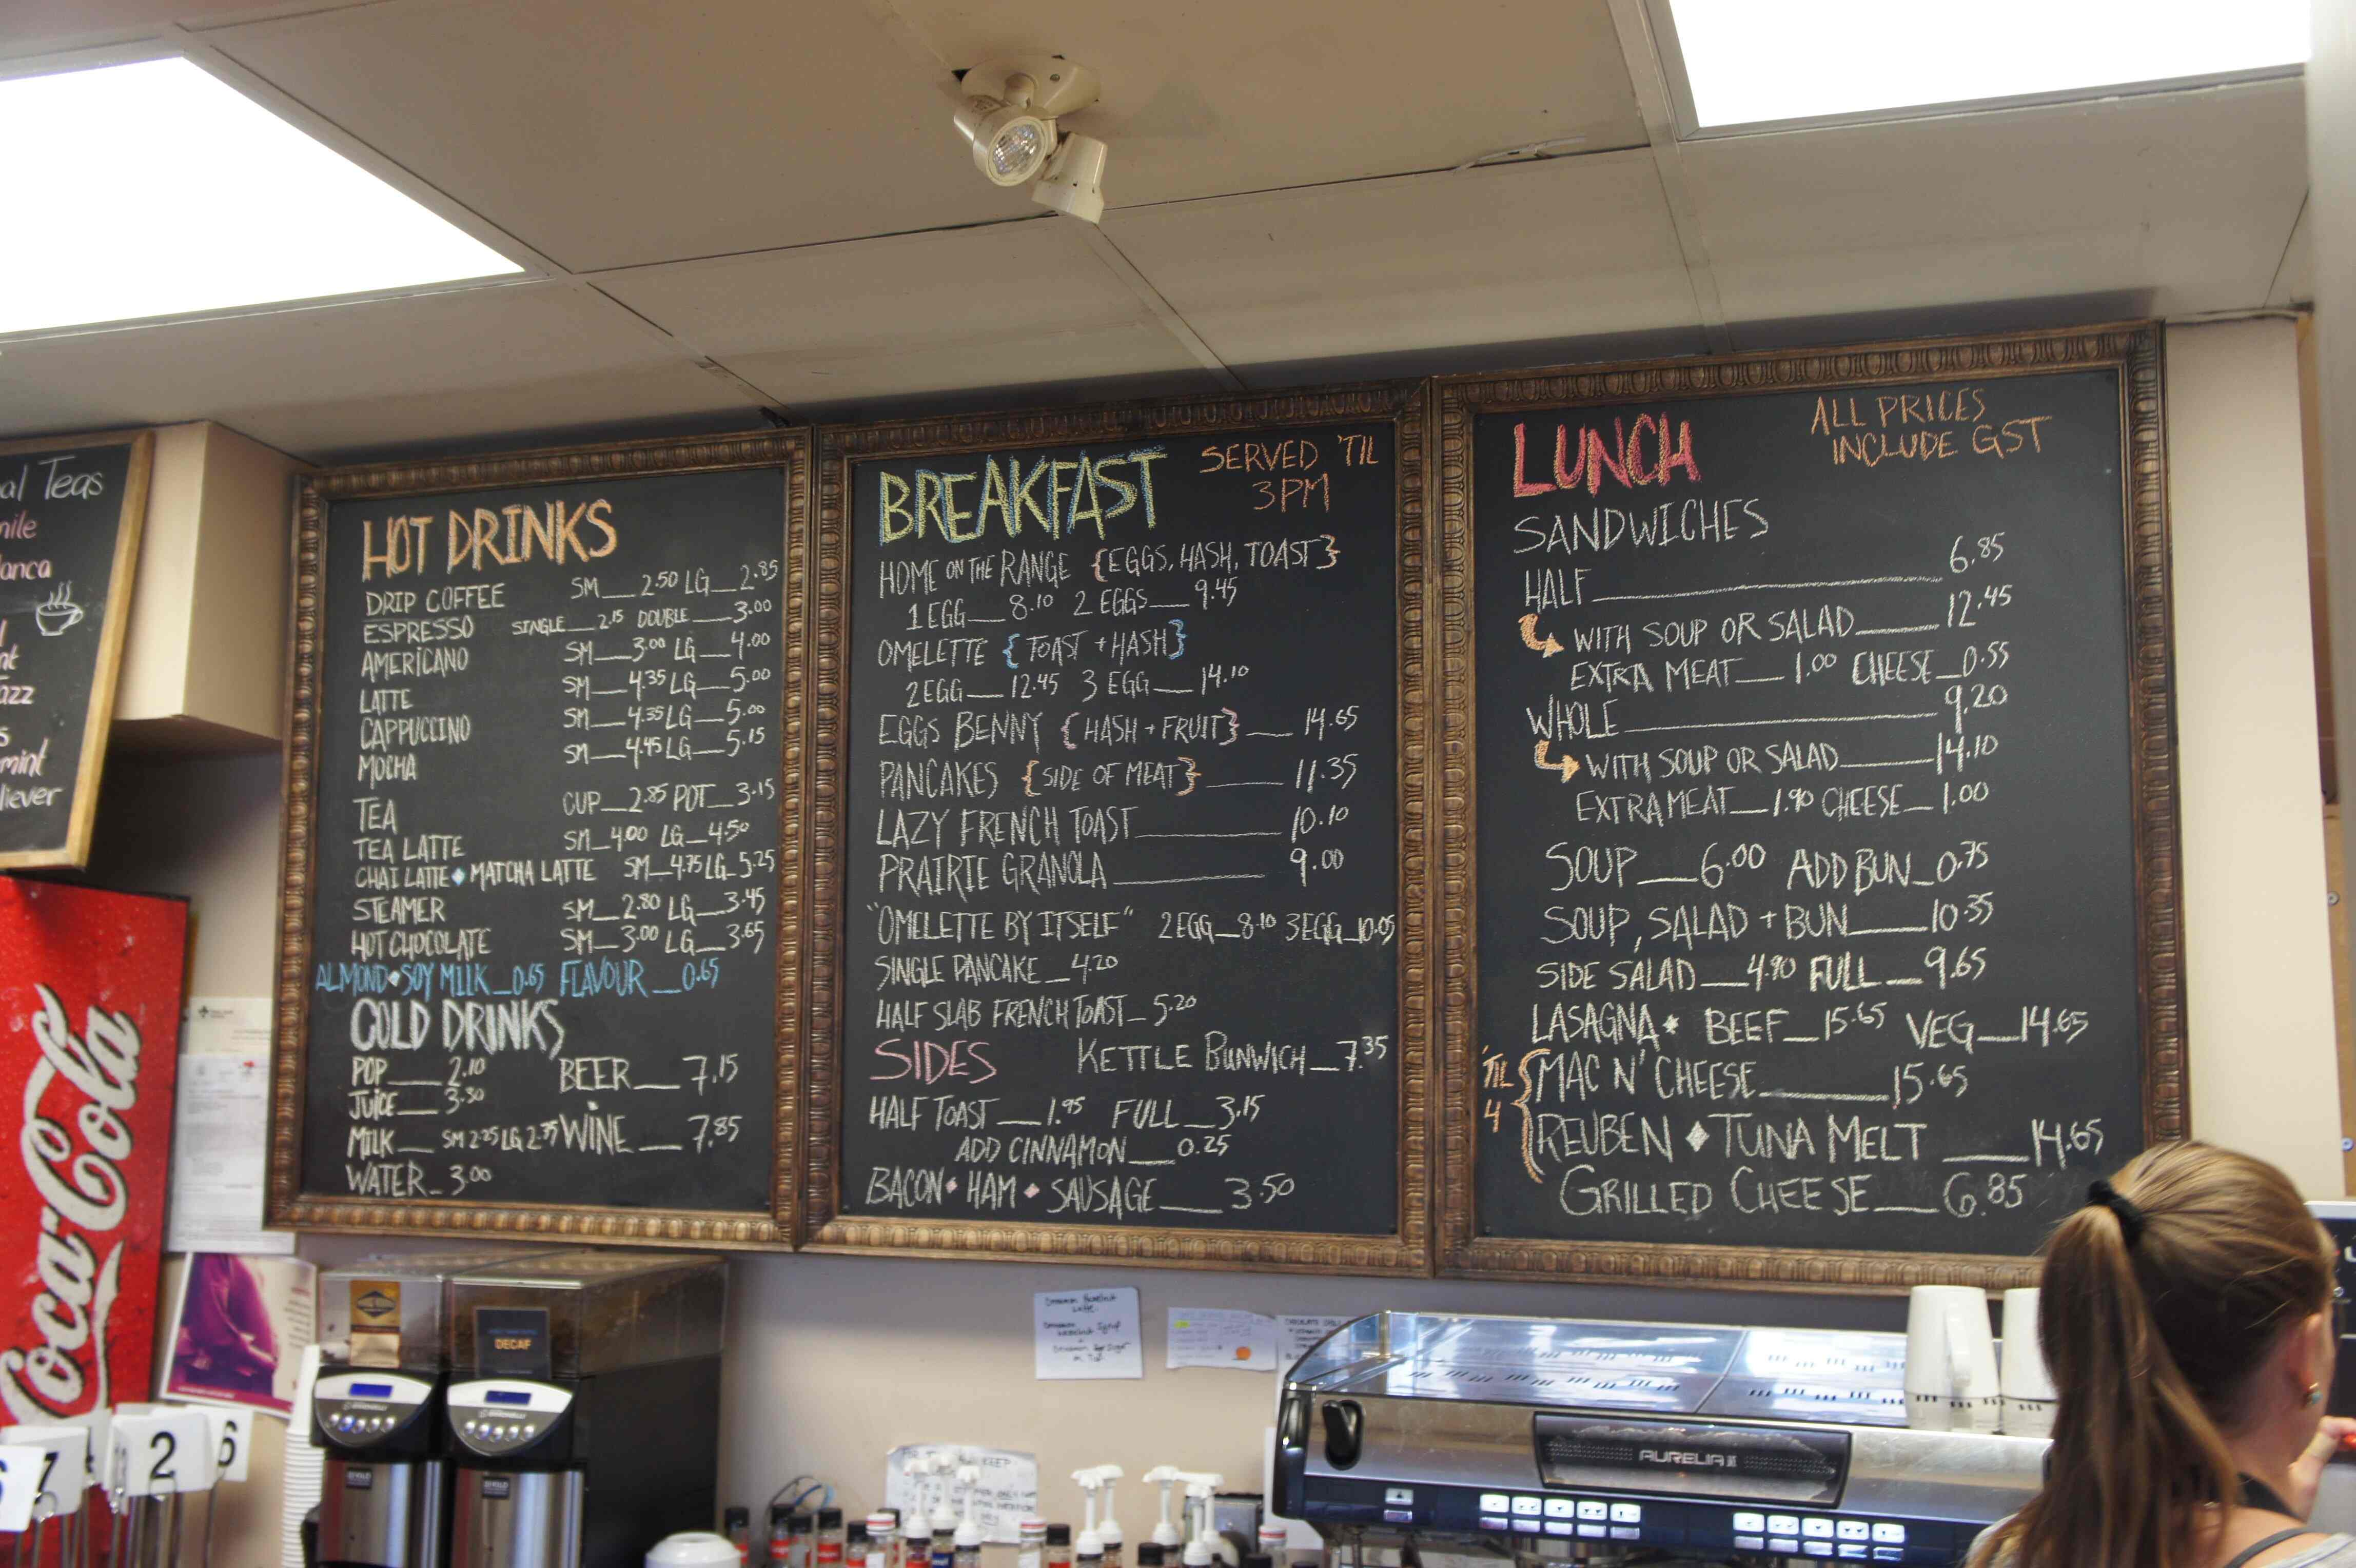 al Teas
nile
anca
nt
azz
s
mint
liever
HOT DRINKS
DRIP COFFEE SM__2.50 LG__2.85
ESPRESSO SINGLE__2.15 DOUBLE__3.00
AMERICANO SM__3.00 LG__4.00
LATTE SM__4.35 LG__5.00
CAPPUCCINO SM__4.35 LG__5.00
MOCHA SM__4.45 LG__5.15
TEA CUP__2.85 POT__3.15
TEA LATTE SM_4.00 LG_4.50
CHAI LATTE◆MATCHA LATTE SM_4.75 LG_5.25
STEAMER SM__2.80 LG__3.45
HOT CHOCOLATE SM__3.00 LG__3.65
ALMOND◆SOY MILK_0.65 FLAVOUR__0.65
COLD DRINKS
POP___2.10 BEER___7.15
JUICE___3.30
MILK__ SM 2.25 LG 2.75 WINE___7.85
WATER_3.00
BREAKFAST SERVED 'TIL
3PM
HOME ON THE RANGE {EGGS, HASH, TOAST}
1 EGG__8.10 2 EGGS__9.45
OMELETTE {TOAST + HASH}
2 EGG__12.45 3 EGG__14.10
EGGS BENNY {HASH + FRUIT}__14.65
PANCAKES {SIDE OF MEAT}____11.35
LAZY FRENCH TOAST______10.10
PRAIRIE GRANOLA______9.00
"OMELETTE BY ITSELF" 2EGG_8.10 3EGG_10.05
SINGLE PANCAKE_4.20
HALF SLAB FRENCH TOAST_5.20
SIDES KETTLE BUNWICH_7.35
HALF TOAST__1.95 FULL_3.15
ADD CINNAMON__0.25
BACON◆HAM◆SAUSAGE___3.50
LUNCH ALL PRICES
INCLUDE GST
SANDWICHES
HALF__________6.85
WITH SOUP OR SALAD____12.45
EXTRA MEAT__1.00 CHEESE_0.55
WHOLE__________9.20
WITH SOUP OR SALAD____14.10
EXTRA MEAT_1.90 CHEESE_1.00
SOUP__6.00 ADD BUN_0.75
SOUP, SALAD + BUN___10.35
SIDE SALAD__4.90 FULL__9.65
LASAGNA* BEEF_15.65 VEG__14.65
'TIL 4 {MAC N' CHEESE______15.65
REUBEN◆TUNA MELT ___14.65
GRILLED CHEESE__6.85
Coca-Cola
DECAF
AURELIA II
7
2
6